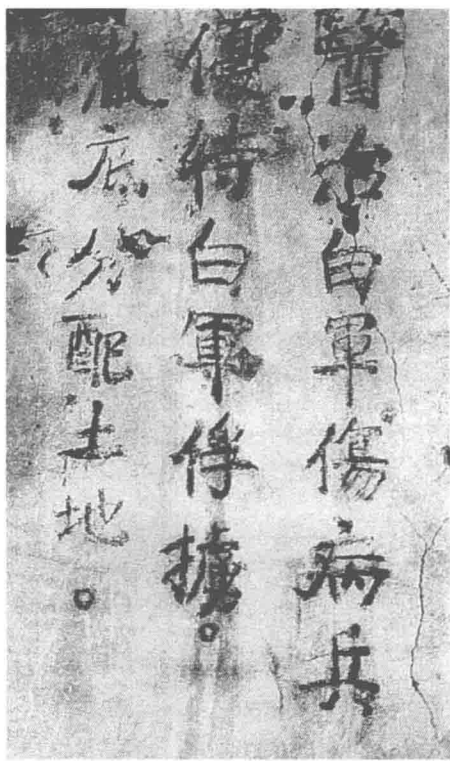 醫治白軍傷病兵
優待白軍俘擄。
徹底分配土地。